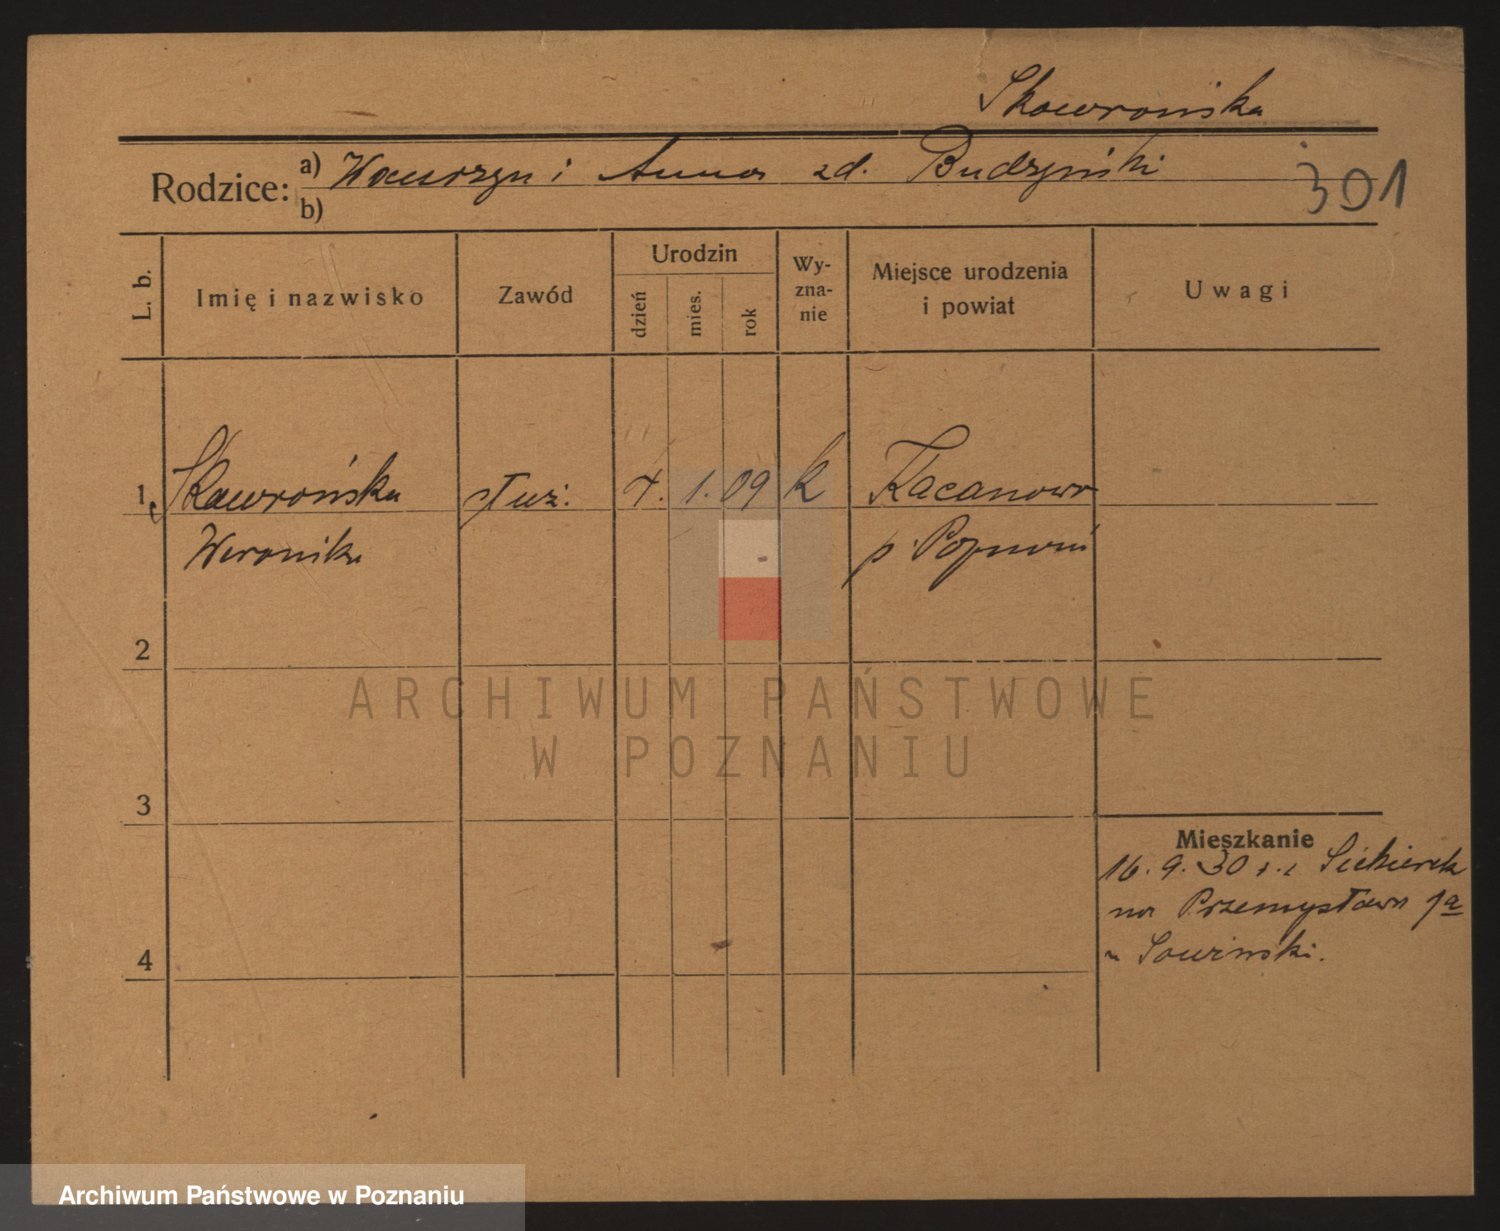 Skowrońska
Rodzice: a) Wawrzyn i Anna zd. Budzyński
b)
301
L. b.
Imię i nazwisko
Zawód
Urodzin
dzień
mies.
rok
Wy-
zna-
nie
Miejsce urodzenia
i powiat
Uwagi
1 Skowrońska służ. 7. 1. 09 k Kacanowo
Weronika p. Poznań
2
ARCHIWUM PAŃSTWOWE
W POZNANIU
3
Mieszkanie
16. 9. 30 Siekierek
na Przemysława 1a
Sowiński.
4
Archiwum Państwowe w Poznaniu